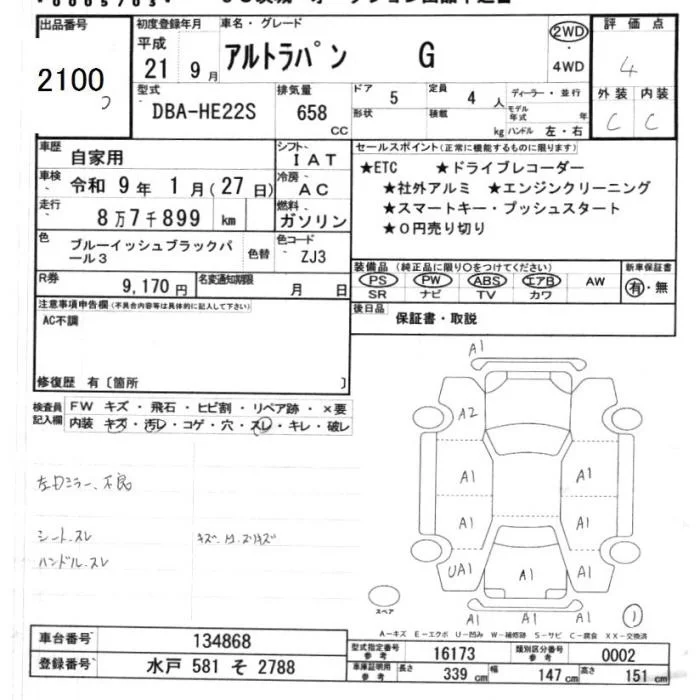 出品番号
2100
初度登録年月
平成
21 9月
車名・グレード
アルトラパン G
2WD
・
4WD
評価点
4
外装 内装
C C
型式
DBA-HE22S
排気量
658
CC
ドア
5
定員
4人
形状
積載
kg
ディーラー・並行
モデル年式 年
ハンドル 左・右
車歴
自家用
シフト
IAT
車検
令和 9年 1月(27日)
冷房
AC
走行
8万7千899 km
燃料
ガソリン
色
ブルーイッシュブラックパール3
色替
色コード
ZJ3
R券
9,170円
名変通知期限
月 日
セールスポイント(正常に機能するものに限ります)
★ETC ★ドライブレコーダー
★社外アルミ ★エンジンクリーニング
★スマートキー・プッシュスタート
★0円売り切り
装備品(純正品に限り○をつけてください)
PS PW ABS エアB AW
SR ナビ TV カワ
新車保証書
有・無
後日品
保証書・取説
注意事項申告欄(不具合内容等は具体的に記入して下さい)
AC不調
修復歴 有〔箇所 〕
検査員記入欄
FW キズ・飛石・ヒビ割・リペア跡・×要
内装 キズ・汚レ・コゲ・穴・スレ・キレ・破レ
シート.スレ
ハンドル.スレ
A1
A2
A1 A1
A1 A1
UA1 A1 A1
A1 A1 A1
スペア
1
A-キズ E-エクボ U-凹み W-補修跡 S-サビ C-腐食 XX-交換済
車台番号
134868
登録番号
水戸 581 そ 2788
型式指定番号
参考
16173
類別区分番号
参考
0002
車庫証明用
参考
長さ 339 cm 幅 147 cm 高さ 151 cm